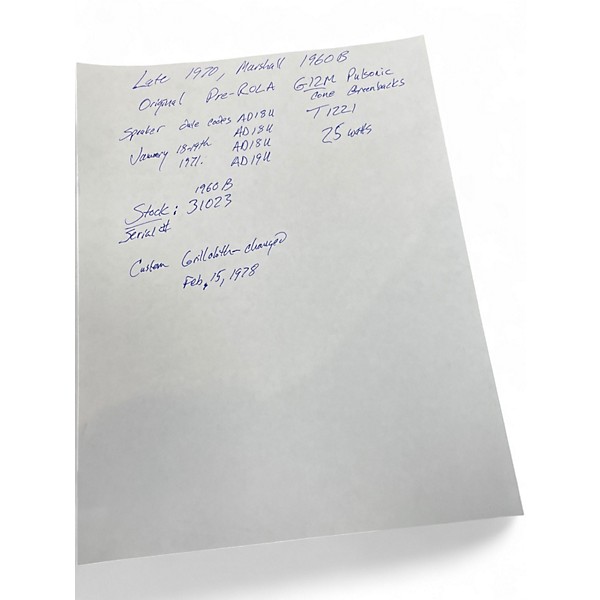 Late 1970, Marshall 1960B
Original Pre-ROLA G12M Pulsonic
Cone Greenbacks
T1221
25 watts
Speaker date codes AD18H
AD18H
January 18-19th AD18H
1971. AD19H
1960B
Stock: 31023
Serial #
Custom Grillcloth - changed
Feb, 15, 1978